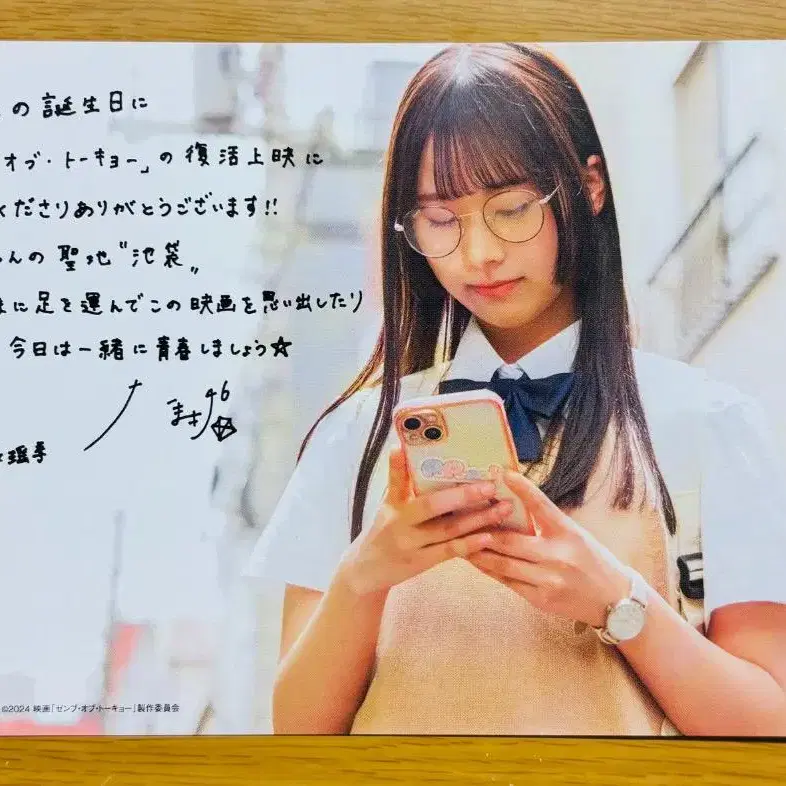 の誕生日に
オブ・トーキョー」の復活上映に
くださりありがとうございます!!
んの聖地〝池袋〟
に足を運んでこの映画を思い出したり
今日は一緒に青春しましょう☆
瑶季
©2024 映画「ゼンブ・オブ・トーキョー」製作委員会